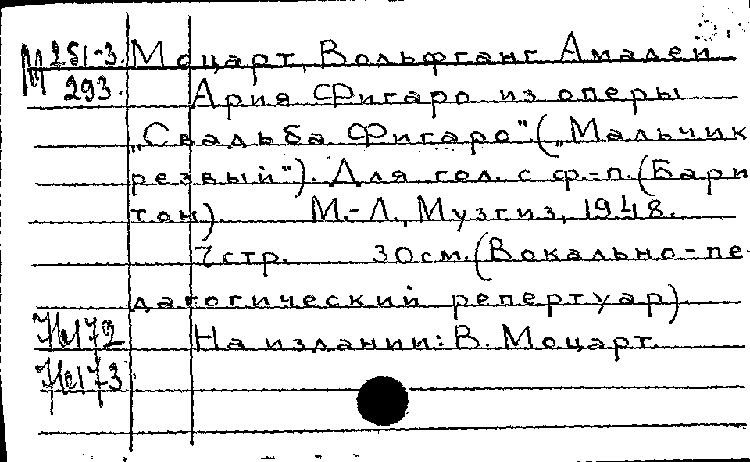 М 251-3. Моцарт, Вольфганг Амадей
293. Ария Фигаро из оперы
„Свадьба Фигаро". („Мальчик
резвый"). Для гол. с ф.-п. (Бари
тон) М.-Л., Музгиз, 1948.
7 стр. 30 см. (Вокально-пе-
дагогический репертуар)
На издании: В. Моцарт.